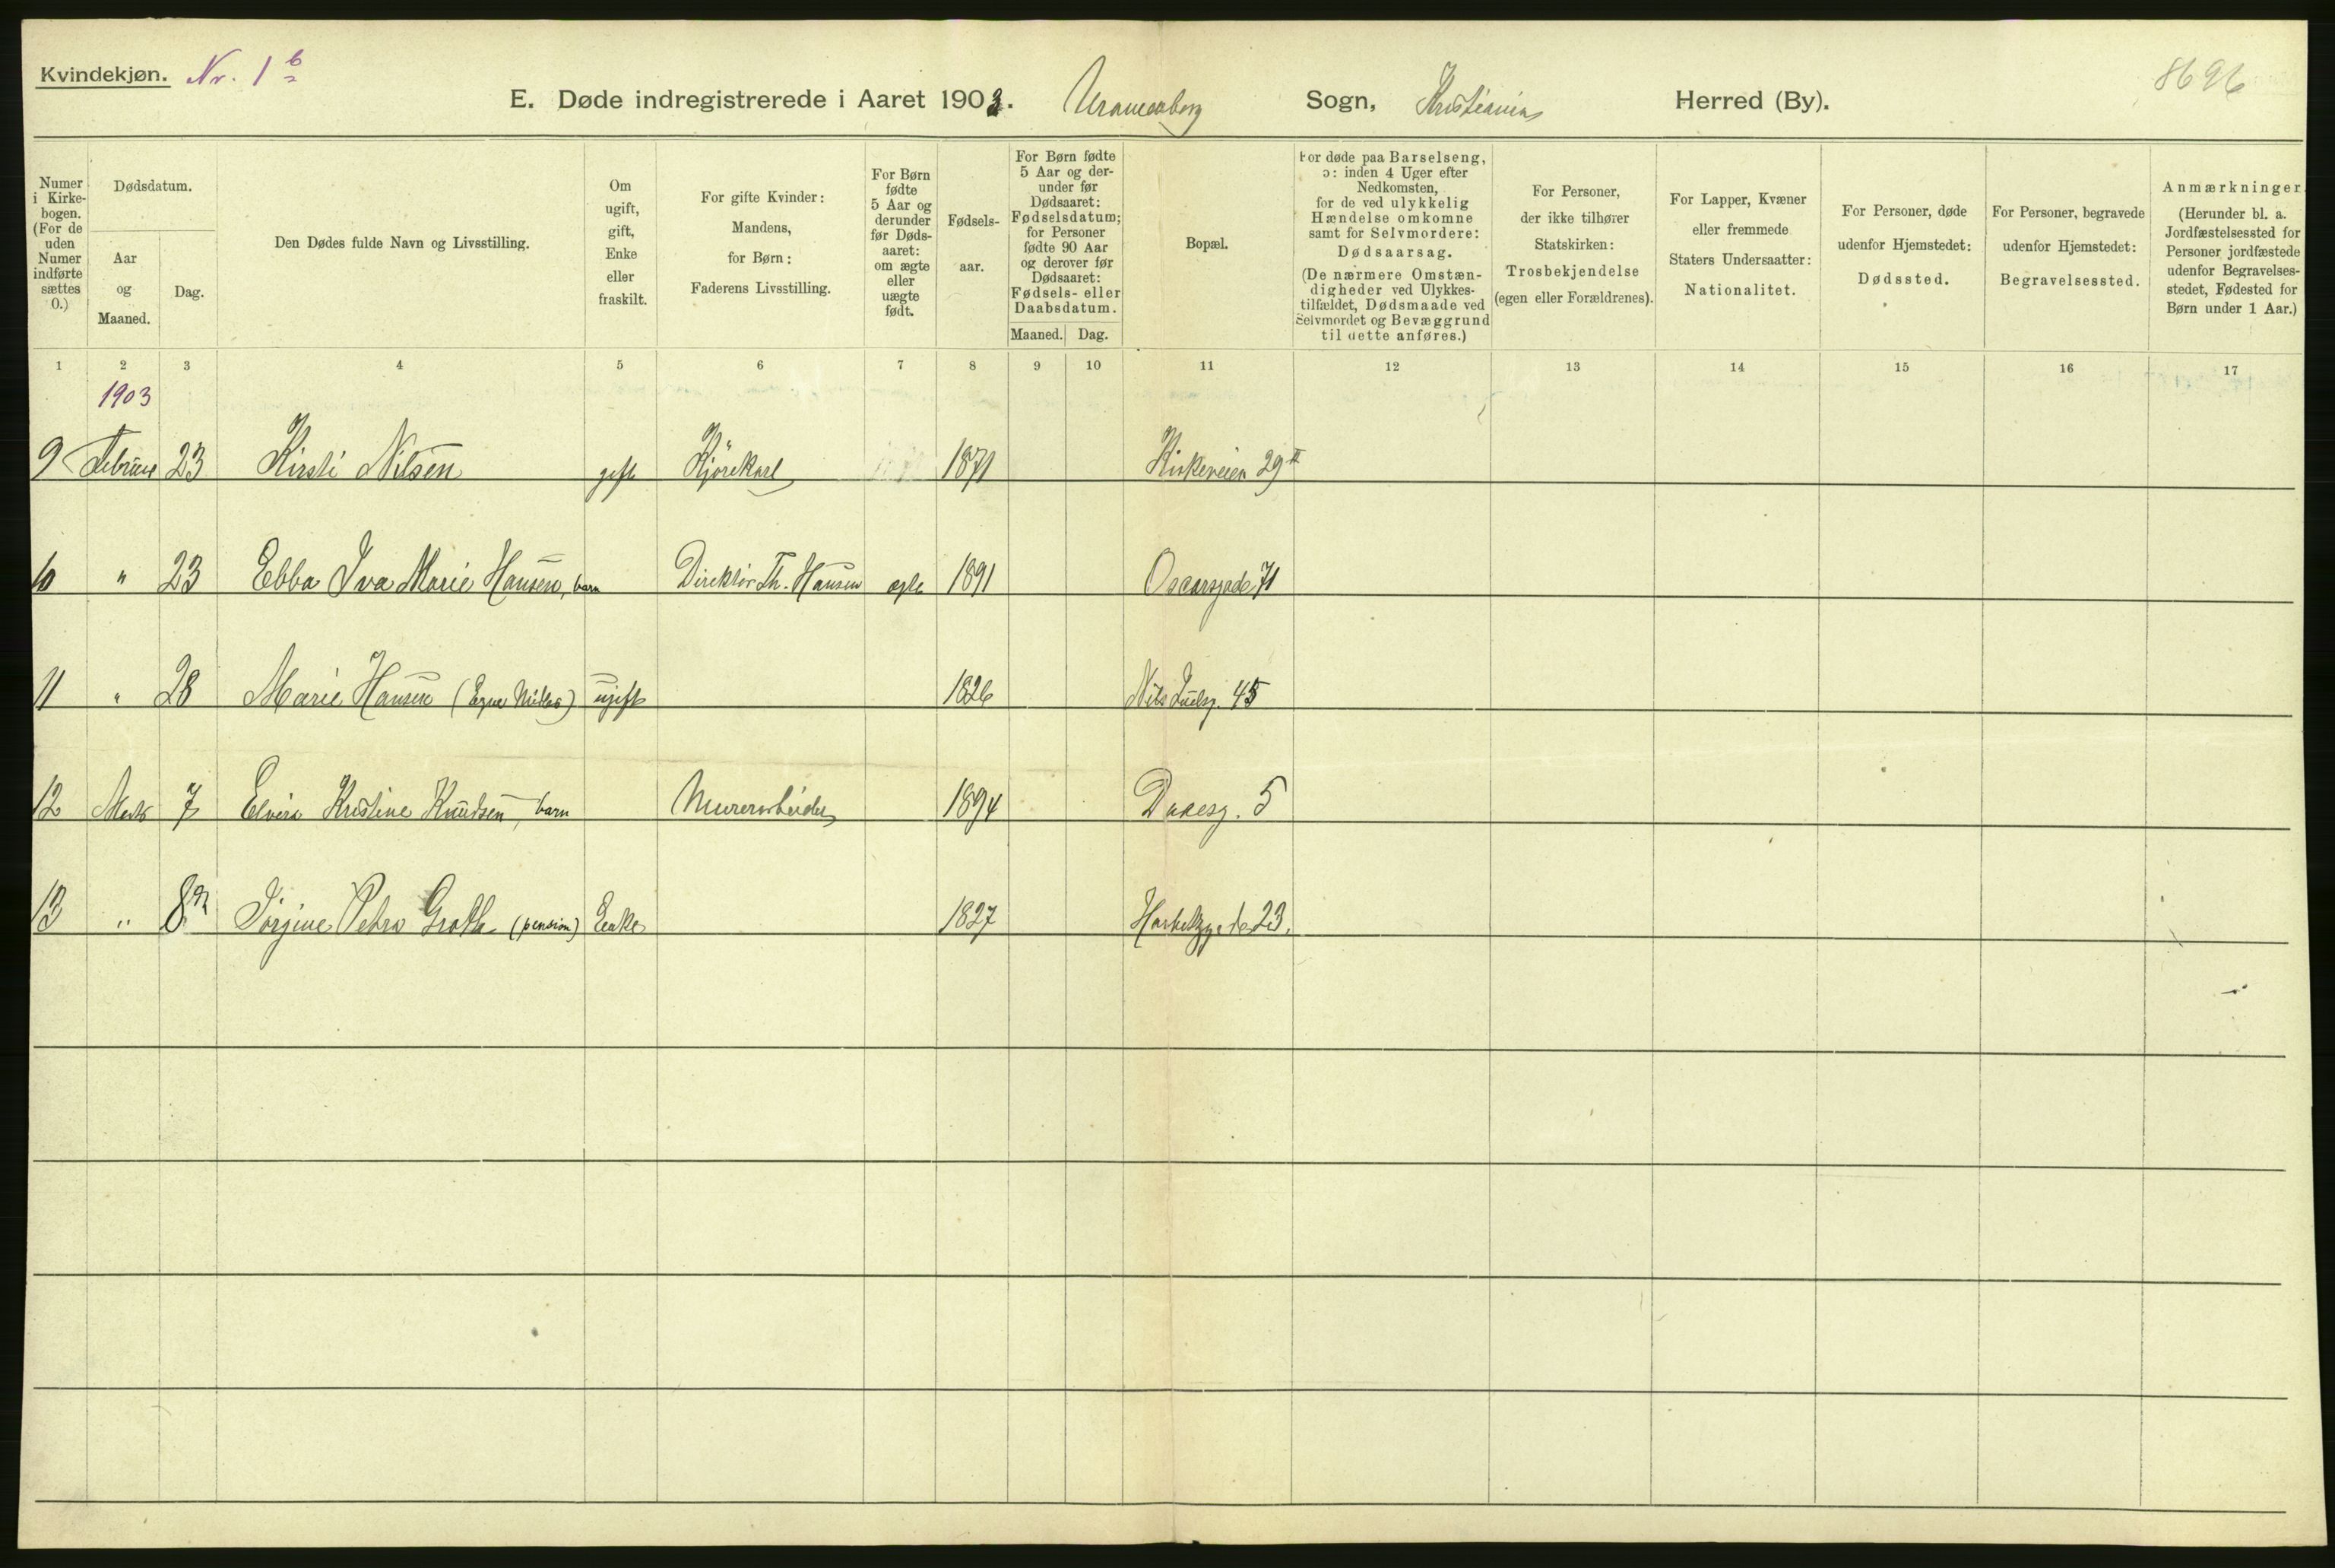 Kvindekjøn. Nr. 1 b
8696
E. Døde indregistrerede i Aaret 1903. Uranienborg Sogn, Kristiania Herred (By).
Numer i Kirkebogen. (For de uden Numer indførte sættes 0.)
Dødsdatum.
Aar og Maaned.
Dag.
Den Dødes fulde Navn og Livsstilling.
Om ugift, gift, Enke eller fraskilt.
For gifte Kvinder: Mandens, for Børn: Faderens Livsstilling.
For Børn fødte 5 Aar og derunder før Dødsaaret: om ægte eller uægte født.
Fødselsaar.
For Børn fødte 5 Aar og derunder før Dødsaaret: Fødselsdatum; for Personer fødte 90 Aar og derover før Dødsaaret: Fødsels- eller Daabsdatum.
Maaned. Dag.
Bopæl.
For døde paa Barselseng, ɔ: inden 4 Uger efter Nedkomsten, for de ved ulykkelig Hændelse omkomne samt for Selvmordere: Dødsaarsag. (De nærmere Omstændigheder ved Ulykkestilfældet, Dødsmaade ved Selvmordet og Bevæggrund til dette anføres.)
For Personer, der ikke tilhører Statskirken: Trosbekjendelse (egen eller Forældrenes).
For Lapper, Kvæner eller fremmede Staters Undersaatter: Nationalitet.
For Personer, døde udenfor Hjemstedet: Dødssted.
For Personer, begravede udenfor Hjemstedet: Begravelsessted.
Anmærkninger (Herunder bl. a. Jordfæstelsessted for Personer jordfæstede udenfor Begravelsesstedet, Fødested for Børn under 1 Aar.)
1 2 3 4 5 6 7 8 9 10 11 12 13 14 15 16 17
1903
9 Februar 23 Kirsti Nilsen gift Kjørekarl 1871 Kirkeveien 29 II
10 " 23 Ebba Iva Marie Hansen, barn Direktör Th. Hansen ægte 1891 Oscarsgade 71
11 " 28 Marie Hansen (Egne Midler) ugift 1826 Nils Juelsg. 45
12 Marts 7 Elvira Kristine Knudsen, barn Murerarbeider 1894 Daaesg. 5
13 " 8 Jörgine Petra Groth (pension) Enke 1827 23.